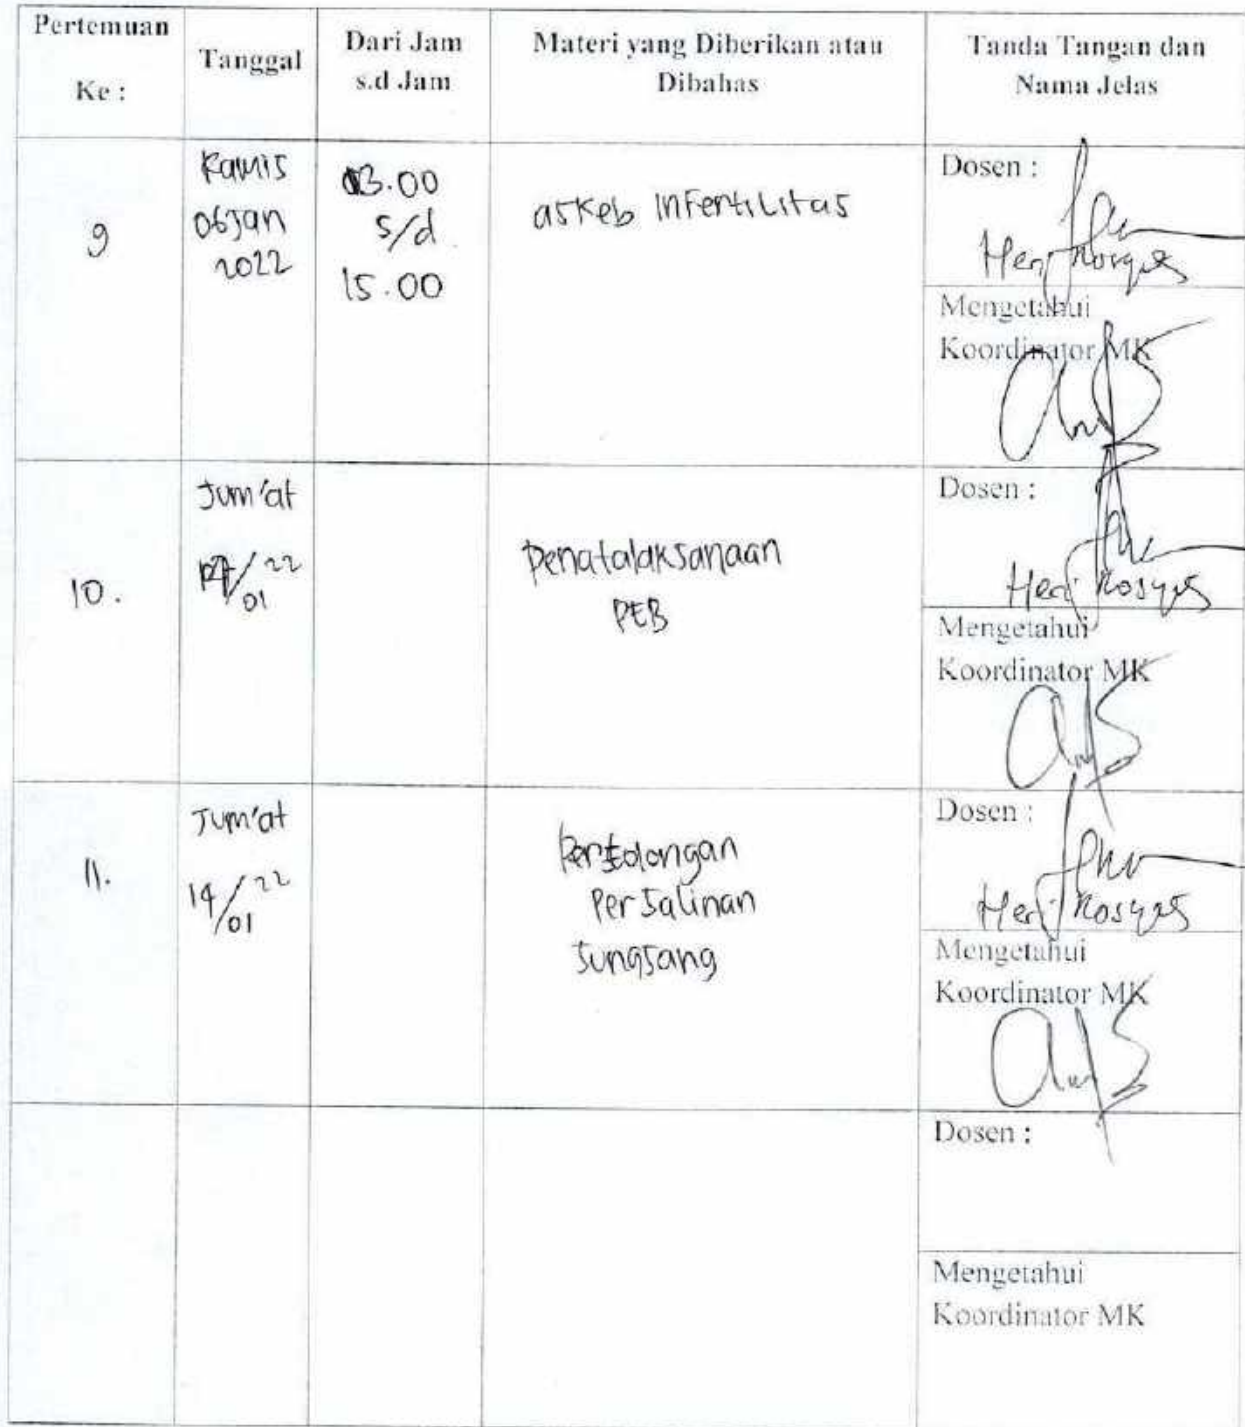 Pertemuan
Ke :
Tanggal
Dari Jam
s.d Jam
Materi yang Diberikan atau
Dibahas
Tanda Tangan dan
Nama Jelas
9
Kamis
06 Jan
2022
13.00
s/d
15.00
asKeb Infertilitas
Dosen :
Heri Rosyati
Mengetahui
Koordinator MK
10.
Jum'at
/22
01
Penatalaksanaan
PEB
Dosen :
Heri Rosyati
Mengetahui
Koordinator MK
11.
Jum'at
14/22
01
Pertolongan
Persalinan
Sungsang
Dosen :
Heri Rosyati
Mengetahui
Koordinator MK
Dosen :
Mengetahui
Koordinator MK